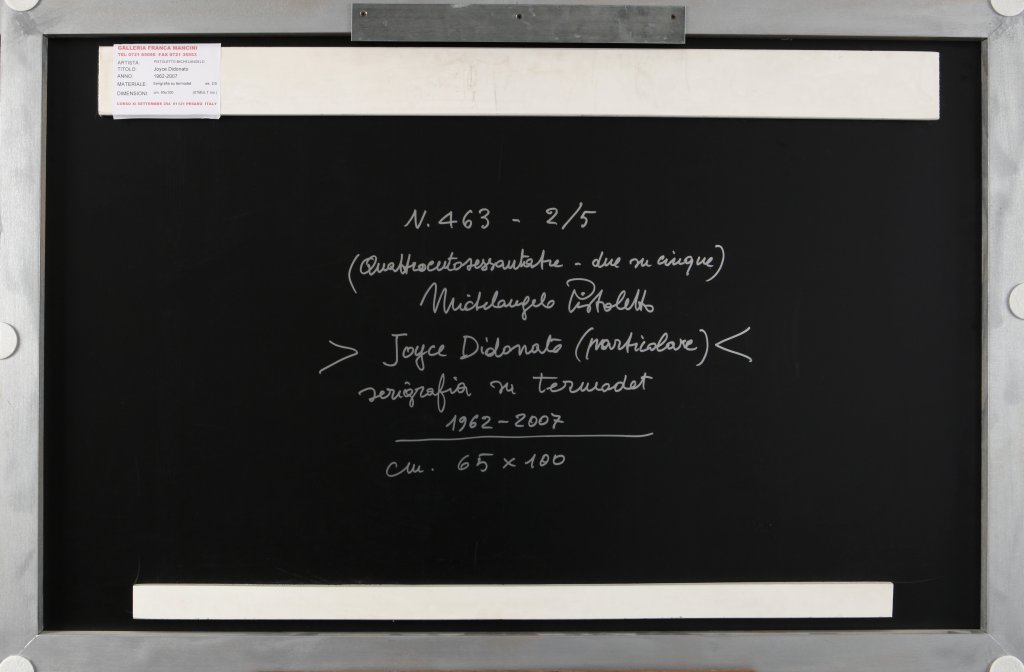 GALLERIA FRANCA MANCINI
ARTISTA: PISTOLETTO MICHELANGELO
TITOLO: Joyce Didonato
ANNO: 1962-2007
MATERIALE: Serigrafia su termadet es. 2/5
DIMENSIONI: cm.
CORSO XI SETTEMBRE PESARO ITALY
N. 463 - 2/5
(Quattrocentosessantatre - due su cinque)
Michelangelo Pistoletto
> Joyce Didonato (particolare) <
serigrafia su termadet
1962-2007
cm. 65 x 100